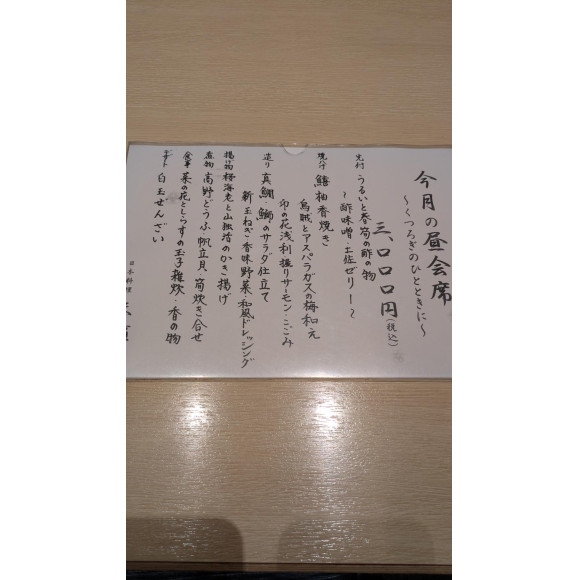 今月の昼会席
〜くつろぎのひとときに〜
三、〇〇〇円(税込)
先付 うるいと春筍の酢の物
〜酢味噌・土佐ゼリー〜
焼八寸 鰆柚香焼き
烏賊とアスパラガスの梅和え
卯の花浅利 握りサーモン・こごみ
造り 真鯛・鰤のサラダ仕立て
新玉ねぎ香味野菜和風ドレッシング
揚げ物 桜海老と山独活のかき揚げ
煮物 高野どうふ 帆立貝 筍炊き合せ
食事 菜の花としらすの玉子雑炊・香の物
デザート 白玉ぜんざい
日本料理